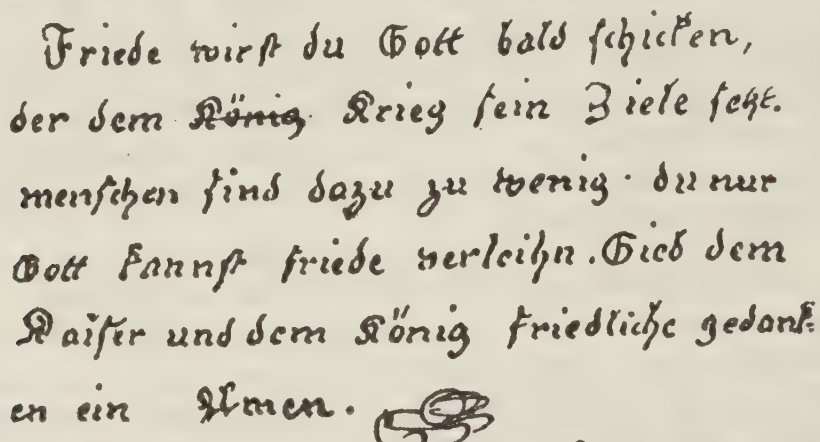 Friede wirst du Gott bald schicken,
der dem König Krieg sein Ziele setzt.
menschen sind dazu zu wenig. du nur
Gott kannst friede verleihn. Gieb dem
Kaiser und dem König friedliche gedank=
en ein Amen.